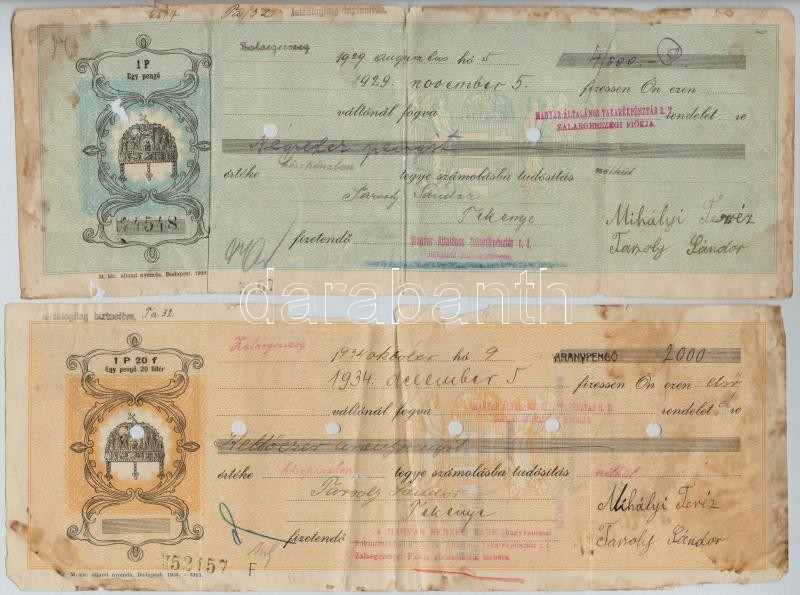 Pa/32 Jelzálogilag biztosítva
Zalaegerszeg
1929 augusztus hó 5 4000.-P
1 P
Egy pengő
1929. november 5. fizessen Ön ezen
váltónál fogva MAGYAR ÁLTALÁNOS TAKARÉKPÉNZTÁR R. T. rendelet re
ZALAEGERSZEGI FIÓKJA.
Négyezer pengőt
értéke készpénzben tegye számolásba tudósítás nélkül
Tarsoly Sándor
74548
Tekenye
Mihályi Teréz
fizetendő Magyar Általános Takarékpénztár r. t.
fiókjánál Zalaegerszegen.
Tarsoly Sándor
M. kir. állami nyomda. Budapest. 1928.
darabanth
Jelzálogilag biztosítva, Pa 32
Zalaegerszeg
1934 október hó 9 ARANYPENGŐ 2000
1 P 20 f
Egy pengő 20 fillér
1934. december 5 fizessen Ön ezen első
váltónál fogva MAGYAR ÁLTALÁNOS TAKARÉKPÉNZTÁR R. T. rendelet re
ZALAEGERSZEGI FIÓKJA.
Kettőezer aranypengőt
értéke készpénzben tegye számolásba tudósítás nélkül
Tarsoly Sándor
Tekenye
Mihályi Teréz
fizetendő a MAGYAR NEMZETI BANK nagykanizsai
Tarsoly Sándor
052457
F
M. kir. állami nyomda, Budapest.